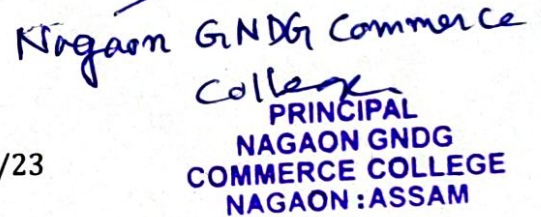 Nagaon GNDG Commerce
College
PRINCIPAL
NAGAON GNDG
/23
COMMERCE COLLEGE
NAGAON : ASSAM